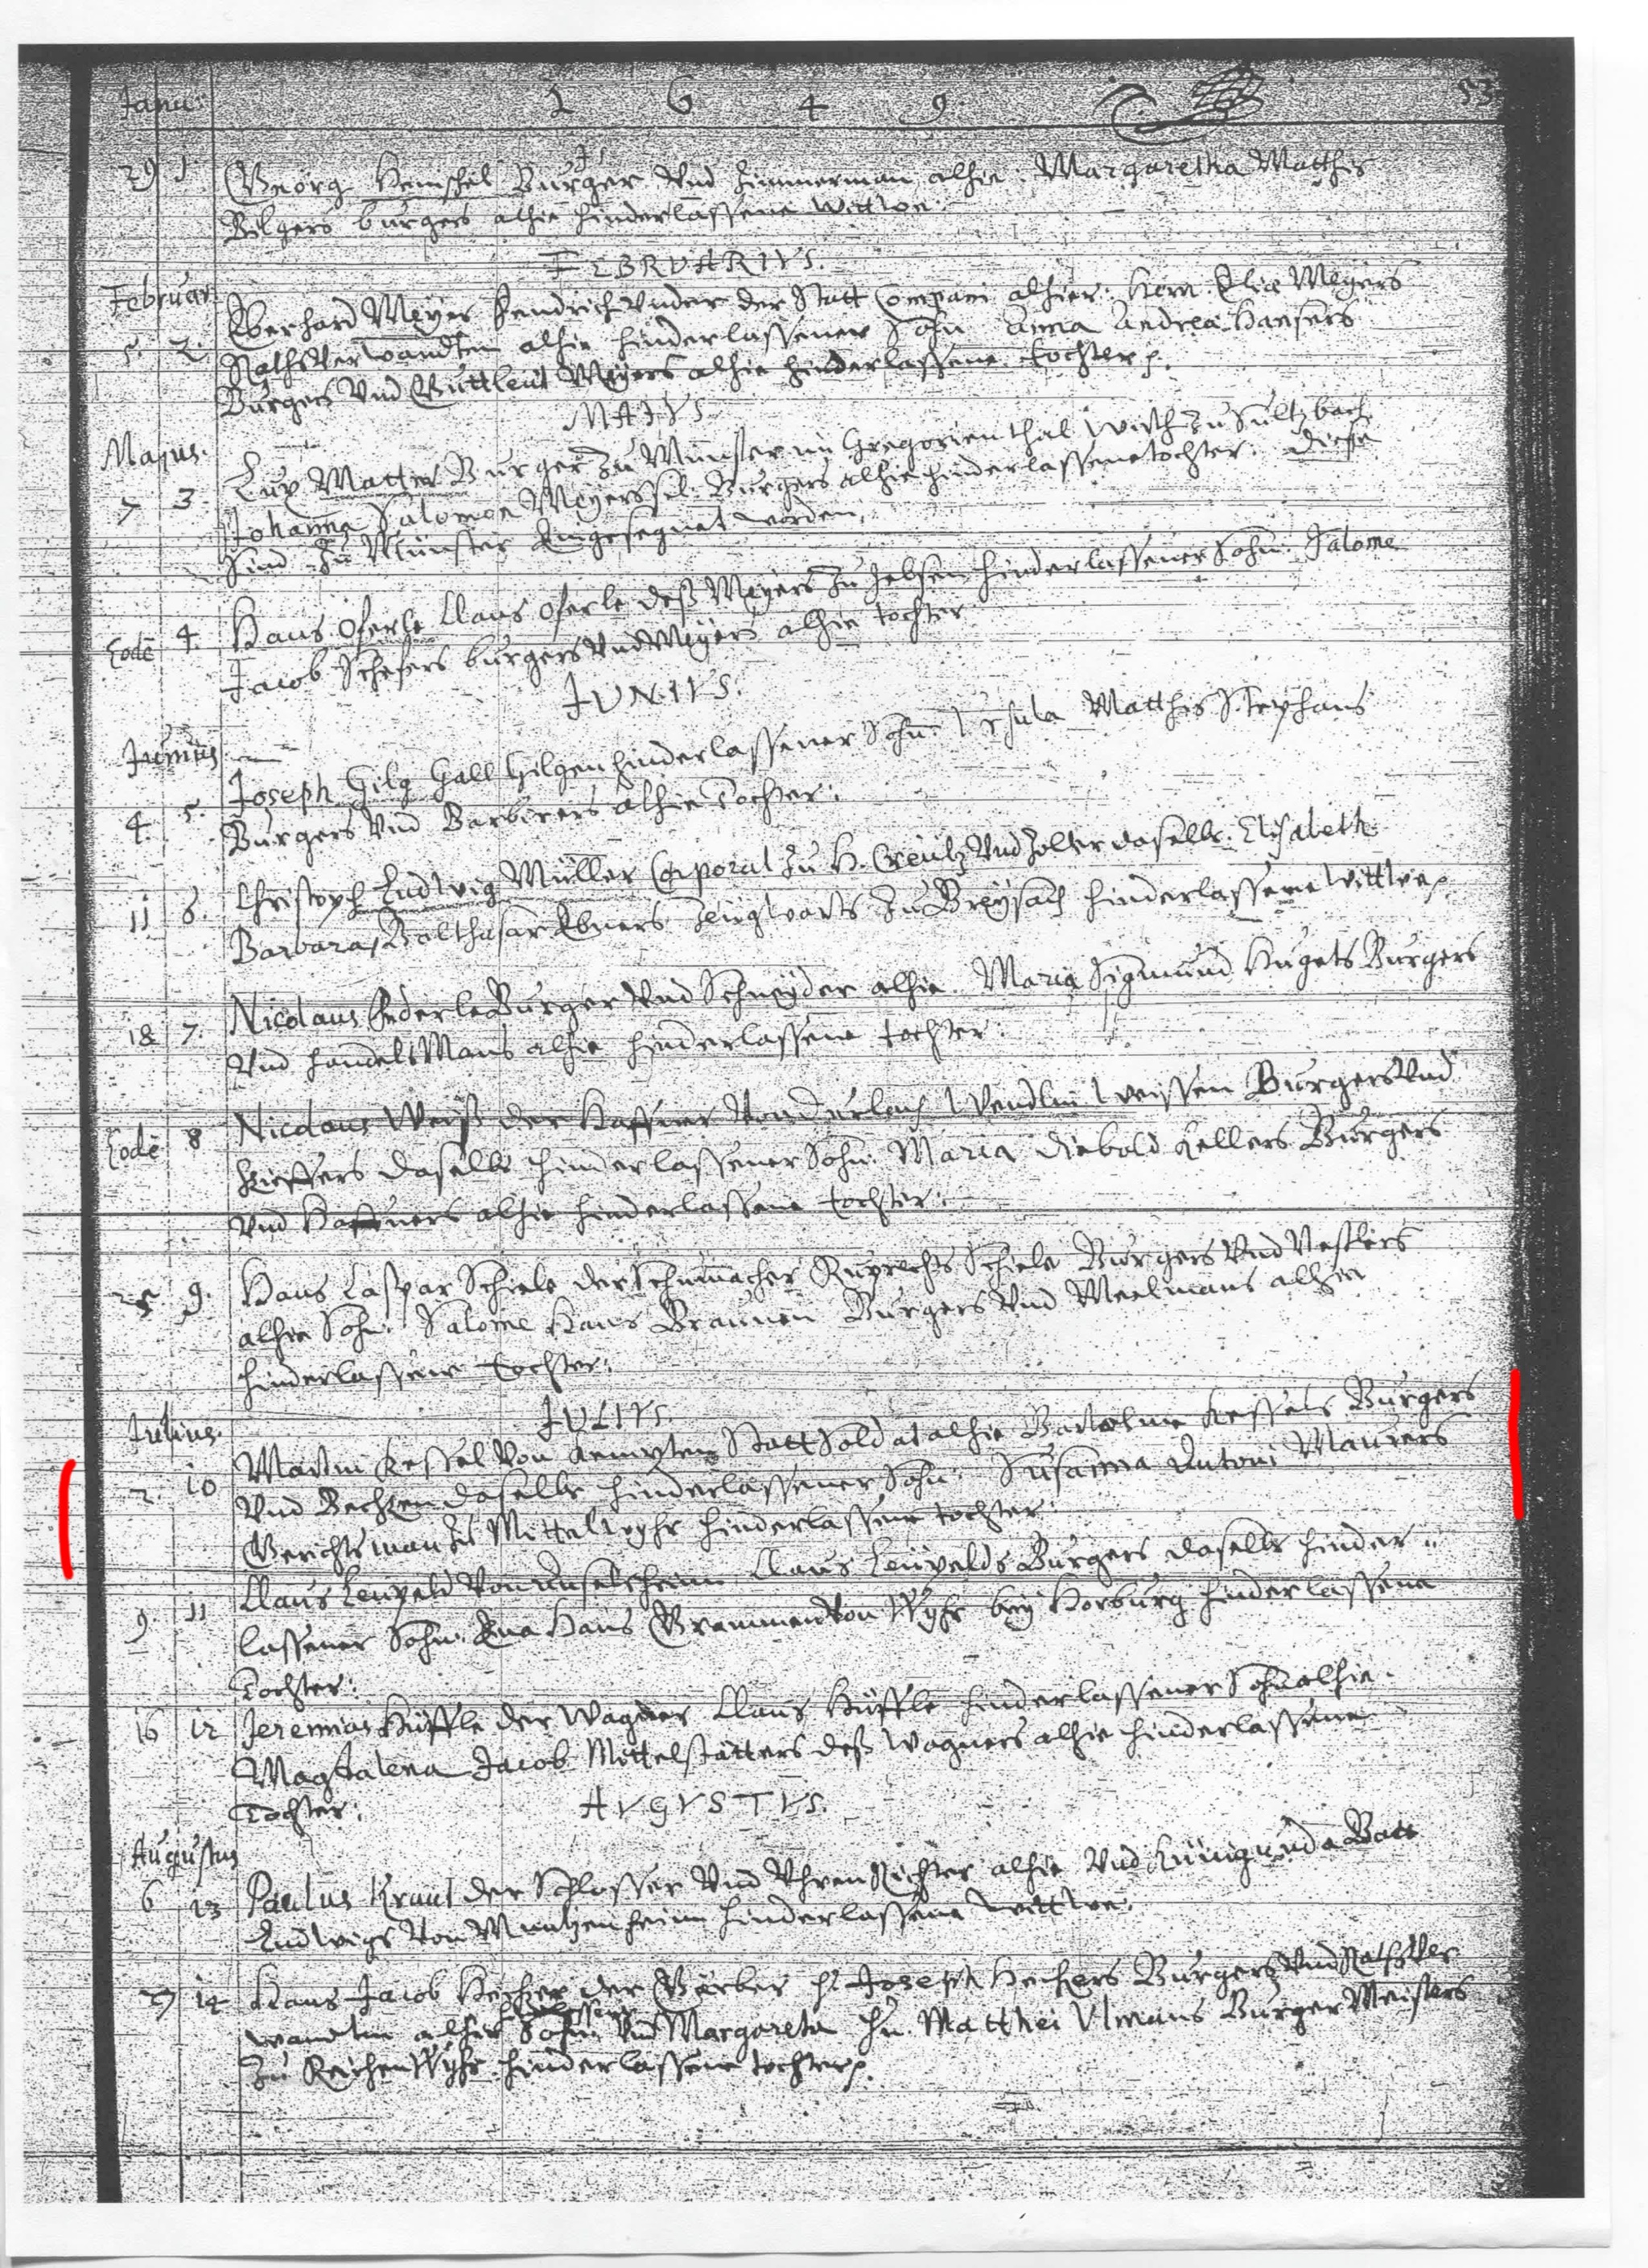 Janu: 1 6 4 9. 53
29 1. Georg Henschel Burger Und Zimmerman alhie: Margaretha Matthis
Bilgers burgers alhie hinderlassene Wittwe.
FEBRVARIVS.
Februar:
5. 2. Eberhard Meyer Fendrich Vnder der Statt Compani alhier: Herrn Eliæ Meyers
RathsVerwandten alhie hinderlassener Sohn Anna Andrea Hansers
Burgers Vnd Guttleut Meyers alhie hinderlassene tochter.
MAIVS
Majus.
7 3. Lux Matter Burger Zu Münster im Gregorienthal Wirth Zu Sultzbach
Johanna Salomon Meyers sel. Burgers alhie hinderlassene tochter. Diese
Sind Zu Münster Eingesegnet worden.
Eodē 4. Hans Oserle Claus Oserle deß Meyers Zu Jebsen hinderlassener Sohn. Salome
Jacob Schefers burgers Vnd Meyers alhie tochter
JUNIVS.
Junius
4. 5. Joseph Gilg Gall Gilgen hinderlassener Sohn. Ursula Matthis Stephans
Burgers Vnd Barbirers alhie Tochter:
11 6. Christoph Ludwig Müller Corporal Zu H. Creütz Vnd Zoller daselbs. Elisabeth
Barbara, Balthasar Ebners Zeugwarts Zu Breysach hinderlassene Wittwe.
18 7. Nicolaus Federle Burger Vnd Schneyder alhie. Maria Sigmund Hugets Burgers
Vnd handelsMans alhie hinderlassene tochter.
Eodē 8 Nicolaus Weiß der Haffner Von Durlach Wendlin Weissen Burgers Vnd
Kieffers daselbs hinderlassener Sohn. Maria Diebold Kellers Burgers
Vnd Haffners alhie hinderlassene tochter.
25. 9. Hans Caspar Schiele der Schumacher Ruprechts Schiele Burgers Vnd Nestlers
alhie Sohn. Salome Hans Braunen Burgers Vnd Meelmans alhie
hinderlassene tochter.
JULIVS.
Julius.
2. 10 Martin Kessel Von Kempten Statt Soldat alhie Bartolme Kessels Burgers
Vnd Becken daselbs hinderlassener Sohn. Susanna Antoni Maurers
Gerichtsman Zu Mittelwyhr hinderlassene tochter.
9. 11 Claus Leupold Von Anselsheim Claus Leupolds Burgers daselbs hinder-
lassener Sohn. Eva Hans Grammen Von Wyhr bey Horburg hinderlassene
Tochter:
16 12 Jeremias Küffle der Wagner Claus Küffle hinderlassener Sohn alhie.
Magdalena Jacob Mittelstätters deß Wagners alhie hinderlassene
Tochter:
AVGVSTVS.
Augustus
6 13 Paulus Kraus der Schlosser Vnd VhrenRichter alhie Vnd Künigunda
Ludwigs Von Muntzenheim hinderlassene Wittwe.
27 14 Hans Jacob Hecher der Gerber H. Joseph Hechers Burgers Vnd RathsVer
wandten alhie hinderlassener Sohn. Vnd Margareta Hn. Matthei Ulmans BurgerMeisters
Zu ReichenWyhr hinderlassene tochter.